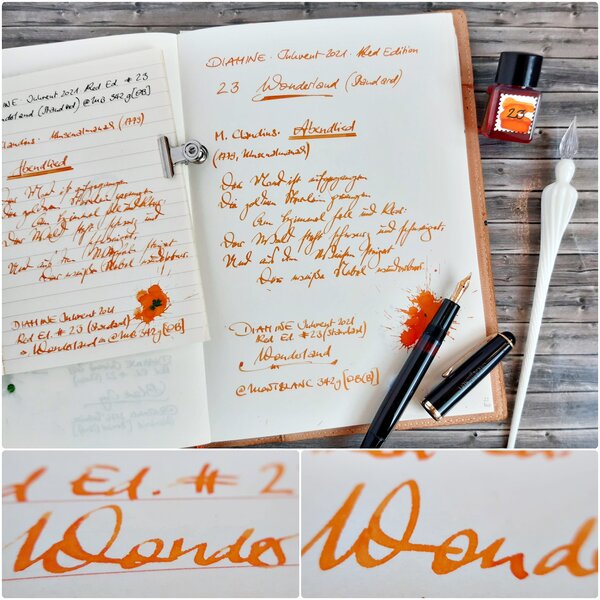 INE Inkvent 2021 Red Ed. # 23
nderland (Standard) @MB 342g [OB]
laudius: Musenalmanach (1779)
Abendlied
Der Mond ist aufgegangen
Die goldnen Sternlein prangen
Am Himmel hell und klar:
Der Wald steht schwarz und
schweiget,
Und aus den Wiesen steiget
Der weiße Nebel wunderbar.
DIAMINE Inkvent 2021
Red Ed. # 23 (Standard)
~ Wonderland ~ @MB 342g [OB]
DIAMINE · Inkvent 2021 · Red Edition
23 Wonderland (Standard)
M. Claudius: Abendlied
(1779, Musenalmanach)
Der Mond ist aufgegangen
Die goldnen Sternlein prangen
Am Himmel hell und klar:
Der Wald steht schwarz und schweiget,
Und aus den Wiesen steiget
Der weiße Nebel wunderbar.
DIAMINE Inkvent 2021
Red Ed. # 23 (Standard)
Wonderland
@MONTBLANC 342g [OB]
23
d Ed. # 2
Wonder
Wond